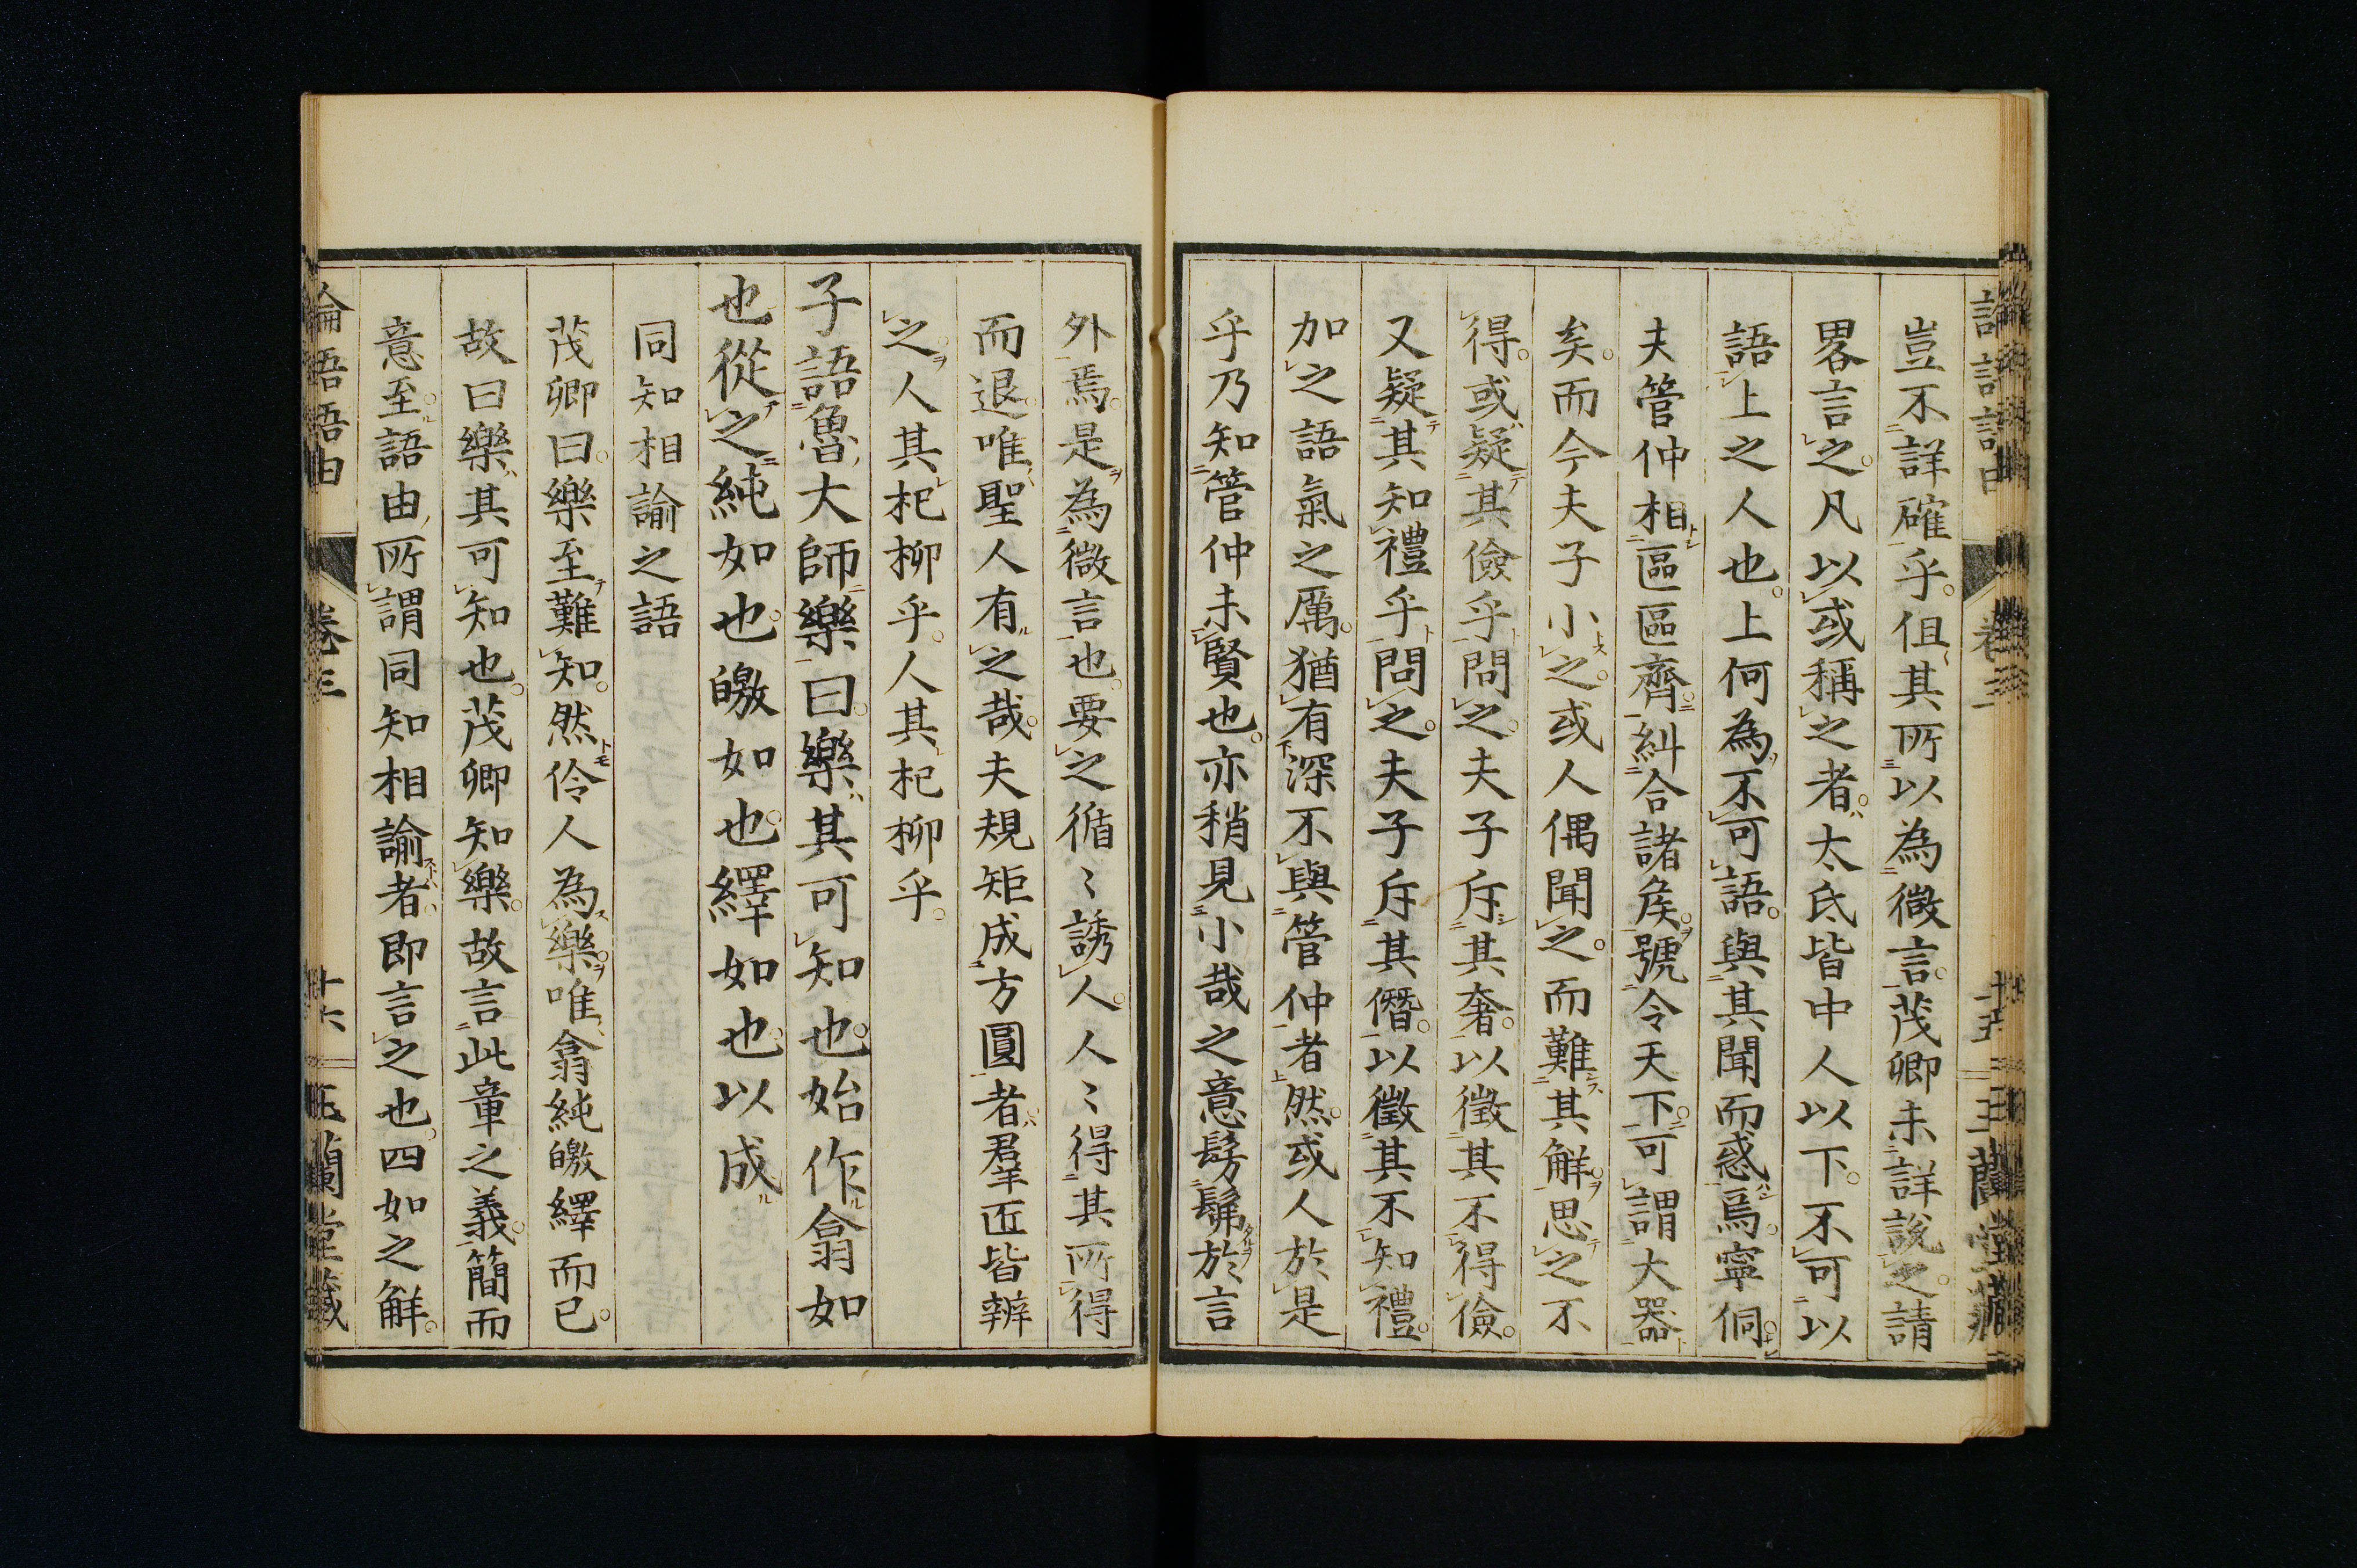 豈不詳確乎但其所以為微言茂卿未詳說之請
畧言之凡以或稱之者太氐皆中人以下不可以
語上之人也上何為不可語與其聞而惑焉寧侗
夫管仲相區區齊糾合諸侯號令天下可謂大器
矣而今夫子小之或人偶聞之而難其解思之不
得或疑其儉乎問之夫子斥其奢以徵其不得儉
又疑其知禮乎問之夫子斥其僭以徵其不知禮
加之語氣之厲猶有深不與管仲者然或人於是
乎乃知管仲未賢也亦稍見小哉之意髣髴於言
外焉是為微言也要之循〻誘人人〻得其所得
而退唯聖人有之哉夫規矩成方圓者羣匠皆辨
之人其杞柳乎人其杞柳乎
子語魯大師樂曰樂其可知也始作翕如
也從之純如也皦如也繹如也以成
同知相諭之語
茂卿曰樂至難知然伶人為樂唯翕純皦繹而已
故曰樂其可知也茂卿知樂故言此章之義簡而
意至語由所謂同知相諭者即言之也四如之解
論語語由 卷三 十六 玉蘭堂藏